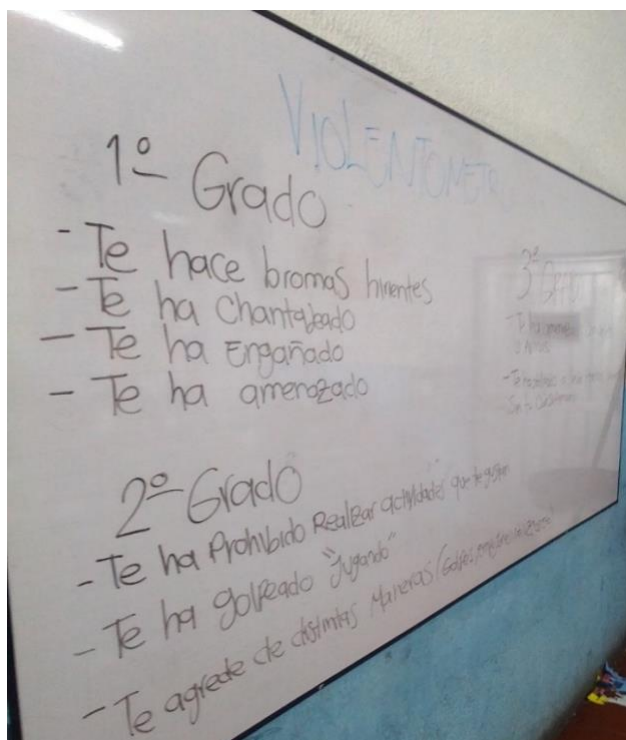 VIOLENTOMETRO
1º Grado
- Te hace bromas hirientes
- Te ha Chantajeado
- Te ha Engañado
- Te ha amenazado
2º Grado
- Te ha Prohibido Realizar actividades que te gustan
- Te ha golpeado "Jugando"
- Te agrede de distintas Maneras (Golpes,
3º
- Te ha
- Te ha
Sin tu